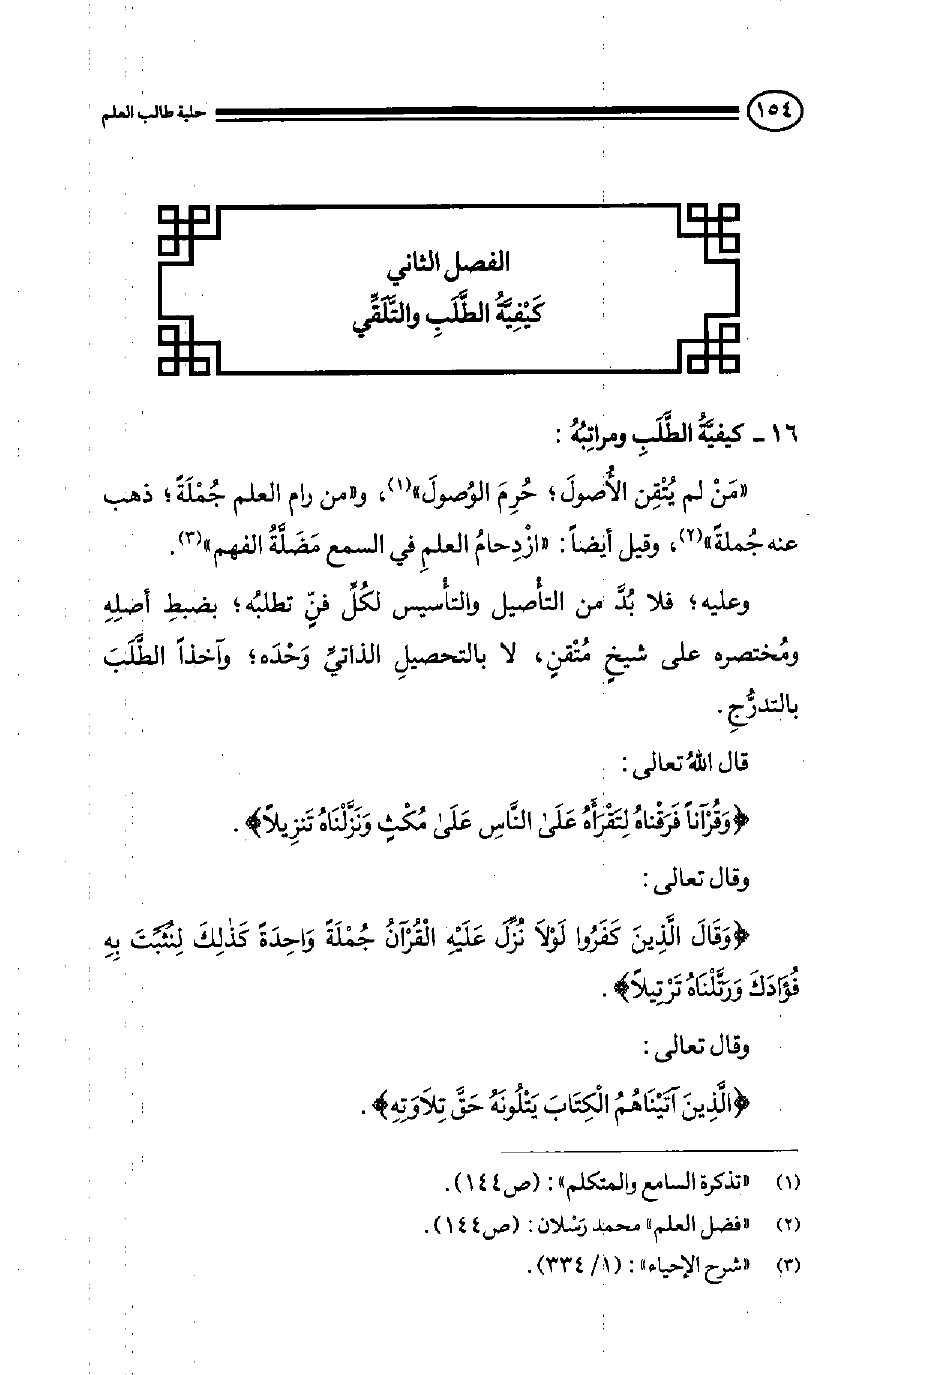 ١٥٤ حلية طالب العلم
الفصل الثاني
كَيْفِيَّةُ الطَّلَبِ والتَّلَقِّي
١٦ ـ كيفيَّةُ الطَّلَبِ ومراتِبُهُ :
«مَنْ لم يُتْقِنِ الأُصولَ؛ حُرِمَ الوُصولَ»(١)، و«من رام العلم جُمْلَةً؛ ذهب
عنه جُملةً»(٢)، وقيل أيضاً: «ازْدِحامُ العلمِ في السمعِ مَضَلَّةُ الفهمِ»(٣).
وعليه؛ فلا بُدَّ من التأصيل والتأسيس لكُلِّ فنّ تطلبُه؛ بضبطِ أصلِهِ
ومُختصره على شيخٍ مُتْقنٍ، لا بالتحصيلِ الذاتيِّ وَحْدَه؛ وآخذاً الطَّلَبَ
بالتدرُّجِ.
قال اللهُ تعالى:
﴿وَقُرْآناً فَرَقْناهُ لِتَقْرَأَهُ عَلَىٰ النَّاسِ عَلَىٰ مُكْثٍ وَنَزَّلْنَاهُ تَنزِيلاً﴾.
وقال تعالى:
﴿وَقَالَ الَّذِينَ كَفَرُوا لَوْلاَ نُزِّلَ عَلَيْهِ الْقُرْآنُ جُمْلَةً وَاحِدَةً كَذٰلِكَ لِنُثَبِّتَ بِهِ
فُؤَادَكَ وَرَتَّلْنَاهُ تَرْتِيلاً﴾.
وقال تعالى:
﴿الَّذِينَ آتَيْنَاهُمُ الْكِتَابَ يَتْلُونَهُ حَقَّ تِلاَوَتِهِ﴾.
(١) «تذكرة السامع والمتكلم»: (ص١٤٤).
(٢) «فضل العلم» محمد رَسْلان: (ص١٤٤).
(٣) «شرح الإحياء»: (١/ ٣٣٤).